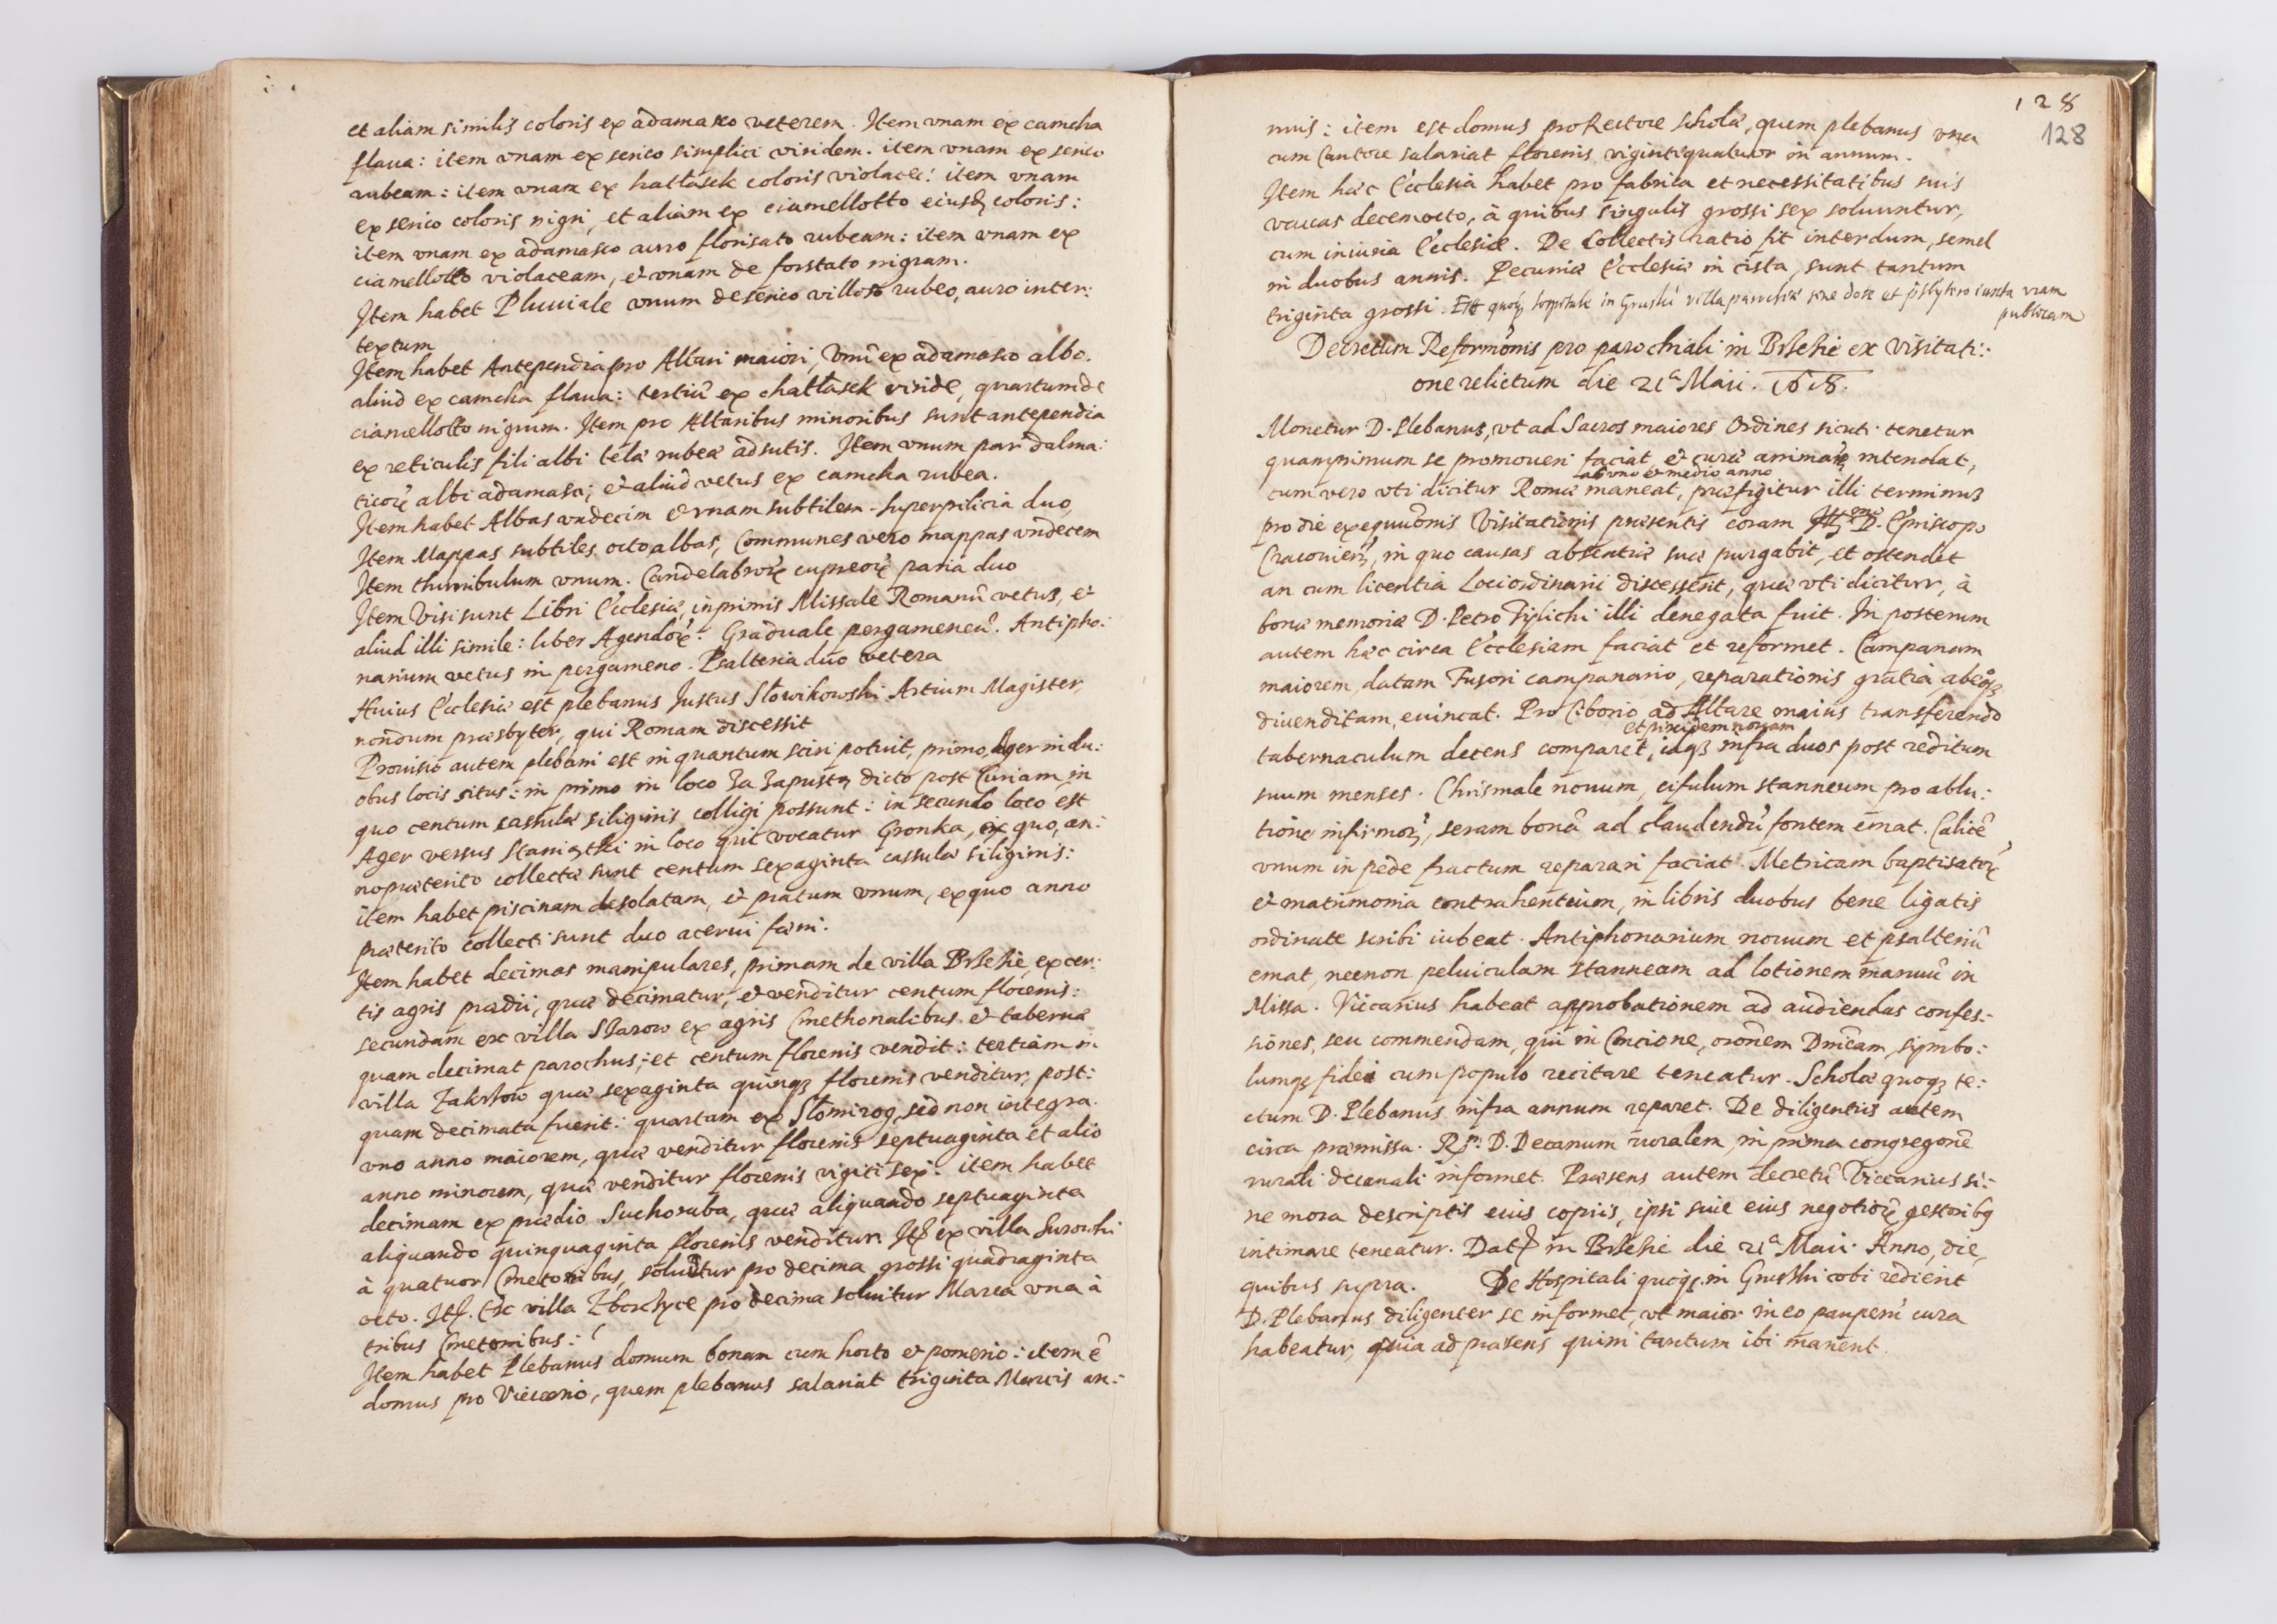 et aliam similis coloris ex adamasco veterem. Item vnam ex camcha
flaua: item vnam ex serico simplici viridem. item vnam ex serico
rubeam: item vnam ex hattasek coloris violacei: item vnam
ex serico coloris nigri, et aliam ex ciamellotto eiusdẽ coloris:
item vnam ex adamasco auro florisato rubeam: item vnam ex
ciamellotto violaceam, et vnam de forstato nigram.
Item habet Pluuiale vnum de serico villoso rubeo, auro inter:
textum
Item habet Antependia pro Altari maiori, Vnũ ex adamasco albo.
aliud ex camcha flaua: tertiũ ex chattasek viride, quartum de
ciamellotto nigrum. Item pro Altaribus minoribus sunt antependia
ex reticulis fili albi tela rubea adsutis. Item vnum par dalma:
ticorũ albi adamasci; et aliud vetus ex camcha rubea.
Item habet Albas vndecim et vnam subtilem. Superpilicia duo,
Item Mappas subtiles octo albas, Communes vero mappas vndecem
Item thurribulum vnum. Candelabrorũ cupreorũ paria duo
Item Visi sunt Libri Ecclesiæ, inprimis Missale Romanũ vetus, et
aliud illi simile: liber Agendorũ. Graduale pergameneũ. Antipho:
narium vetus in pergameno. Psalteria duo vetera
Huius Ecclesiæ est plebanus Justus Słowikowski Artium Magister,
nondum præsbyter, qui Romam discessit
Prouisio autem plebani est in quantum sciri potuit, primo, Ager in du:
obus locis situs: in primo in loco Za Zapustą dicto post Curiam, in
quo centum cassulæ siliginis colligi possunt: in secundo loco est
Ager versus Staniątki in loco qui vocatur Gronka, ex quo, an:
no præterito collectæ sunt centum sexaginta cassulæ siliginis:
item habet piscinam desolatam, et pratum vnum, ex quo anno
præterito collecti sunt duo acerui fæni.
Item habet decimas manipulares, primam de villa Brzezie, ex cer:
tis agris prædii, quæ decimatur, et venditur centum florenis:
secundam ex villa Szarow ex agris Cmethonalibus et tabernæ
quam decimat parochus; et centum florenis vendit: tertiam in
villa Zakrzow quæ sexaginta quinqȝ florenis venditur, post:
quam decimata fuerit: quartam ex Słomirog, sed non integra.
vno anno maiorem, quæ venditur florenis septuaginta et alio
anno minorem, quæ venditur florenis vigiti sex: item habet
decimam ex prædio Suchoraba, quæ aliquando septuaginta
aliquando quinquaginta florenis venditur. Itẽ ex villa Surowki
à quatuor Cmetonibus, soluitur pro decima grossi quadraginta
octo. Itẽ. Ex villa Zborzyce pro decima soluitur Marca vna à
tribus Cmetonibus:
Item habet Plebanus domum bonam cum horto et pomerio: item ẽ
domus pro Viccario, quem plebanus salariat triginta Marcis an:
128
128
nuis: item est domus pro Rectore Scholæ, quem plebanus vna
cum Cantore salariat florenis vigintiquatuor in annum.
Item hæc Ecclesia habet pro fabrica et necessitatibus suis
vaccas decemocto, à quibus singulis grossi sex soluuntur,
cum iniuria Ecclesiæ. De Collectis ratio fit interdum, semel
in duobus annis. Pecuniæ Ecclesiæ in cista, sunt tantum
triginta grossi. Est quoqȝ hospitale in Gruski villa parochiæ sine dote et p̃sbytero iuxta viam
publicam
Decretum Reformõnis pro parochiali in Brzezie ex Visitati:
one relictum die 21ª Maii. 1618.
Monetur D. Plebanus, vt ad Sacros maiores Ordines sicuti tenetur
quamprimum se promoueri faciat et curæ animarũ intendat,
ab vno et medio anno
cum vero vti dicitur Romæ maneat, præfigitur illi terminus
pro die exequutõnis Visitationis præsentis coram D. Episcopo
Cracovieñ, in quo causas absentiæ suæ purgabit, et ostendet
an cum licentia Loci ordinarii discesserit, quæ vti dicitur, à
bonæ memoriæ D. Petro Tylichi illi denegata fuit. In posterum
autem hæc circa Ecclesiam faciat et reformet. Campanam
maiorem, datam Fusori campanario, reparationis gratia, ab eoqȝ
diuenditam, euincat. Pro Ciborio ad Altare maius transferendo
et pixidem nouam
tabernaculum decens comparet, idqȝ infra duos post reditum
suum menses. Chrismale nouum, cifulum stanneum pro ablu:
tione infirmorũ, seram bonã ad claudendũ fontem emat. Calicẽ
vnum in pede fractum reparari faciat. Metricam baptisatorũ
et matrimonia contrahentium, in libris duobus bene ligatis
ordinate scribi iubeat. Antiphonarium nouum et psalteriũ
emat, necnon peluiculam stanneam ad lotionem manuũ in
Missa. Viccarius habeat approbationem ad audiendas confes:
siones, seu commendam, qui in Concione, orõnem Dnicam, symbo:
lumqȝ fidei cum populo recitare teneatur. Scholæ quoqȝ te:
ctum D. Plebanus infra annum reparet. De diligentiis autem
circa præmissa. D. Decanum ruralem, in prima congregonẽ
rurali decanali informet. Præsens autem decretũ Viccarius si:
ne mora descriptis eius copiis, ipsi siue eius negotiorũ gestoribȝ
intimare teneatur. Datẽ in Brzezie die 21ª Maii. Anno, die,
quibus supra. De Hospitali quoqȝ in Gruszki vbi redierit
D. Plebanus diligenter se informet, vt maior in eo pauperũ cura
habeatur, quia ad præsens quini tantum ibi manent.